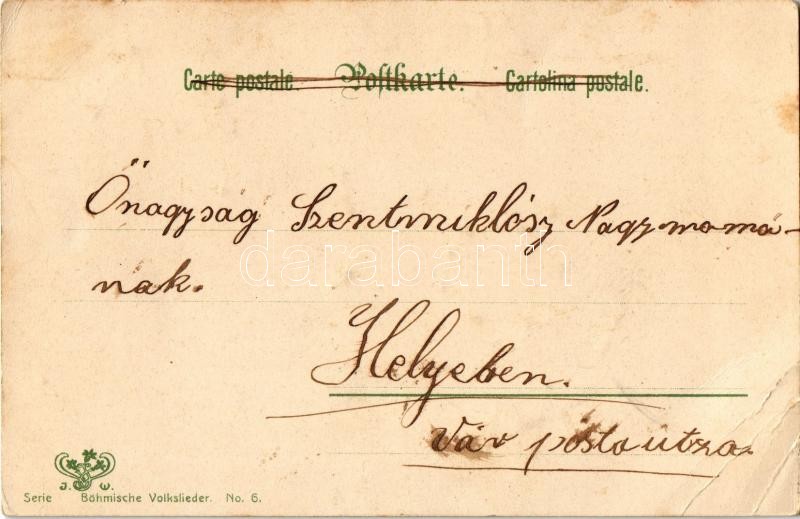 Carte postale. Postkarte. Cartolina postale.
Őnagyság Szentmiklósy Nagymamá-
nak.
darabanth
Helyeben.
Vár posta utza.
J. W.
Serie Böhmische Volkslieder. No. 6.